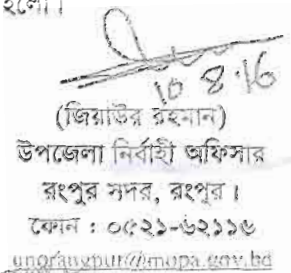 হলো।
10 8.16
(জিয়াউর রহমান)
উপজেলা নির্বাহী অফিসার
রংপুর সদর, রংপুর।
ফোন : ০৫২১-৬২১১৬
unorangpur@mopa.gov.bd